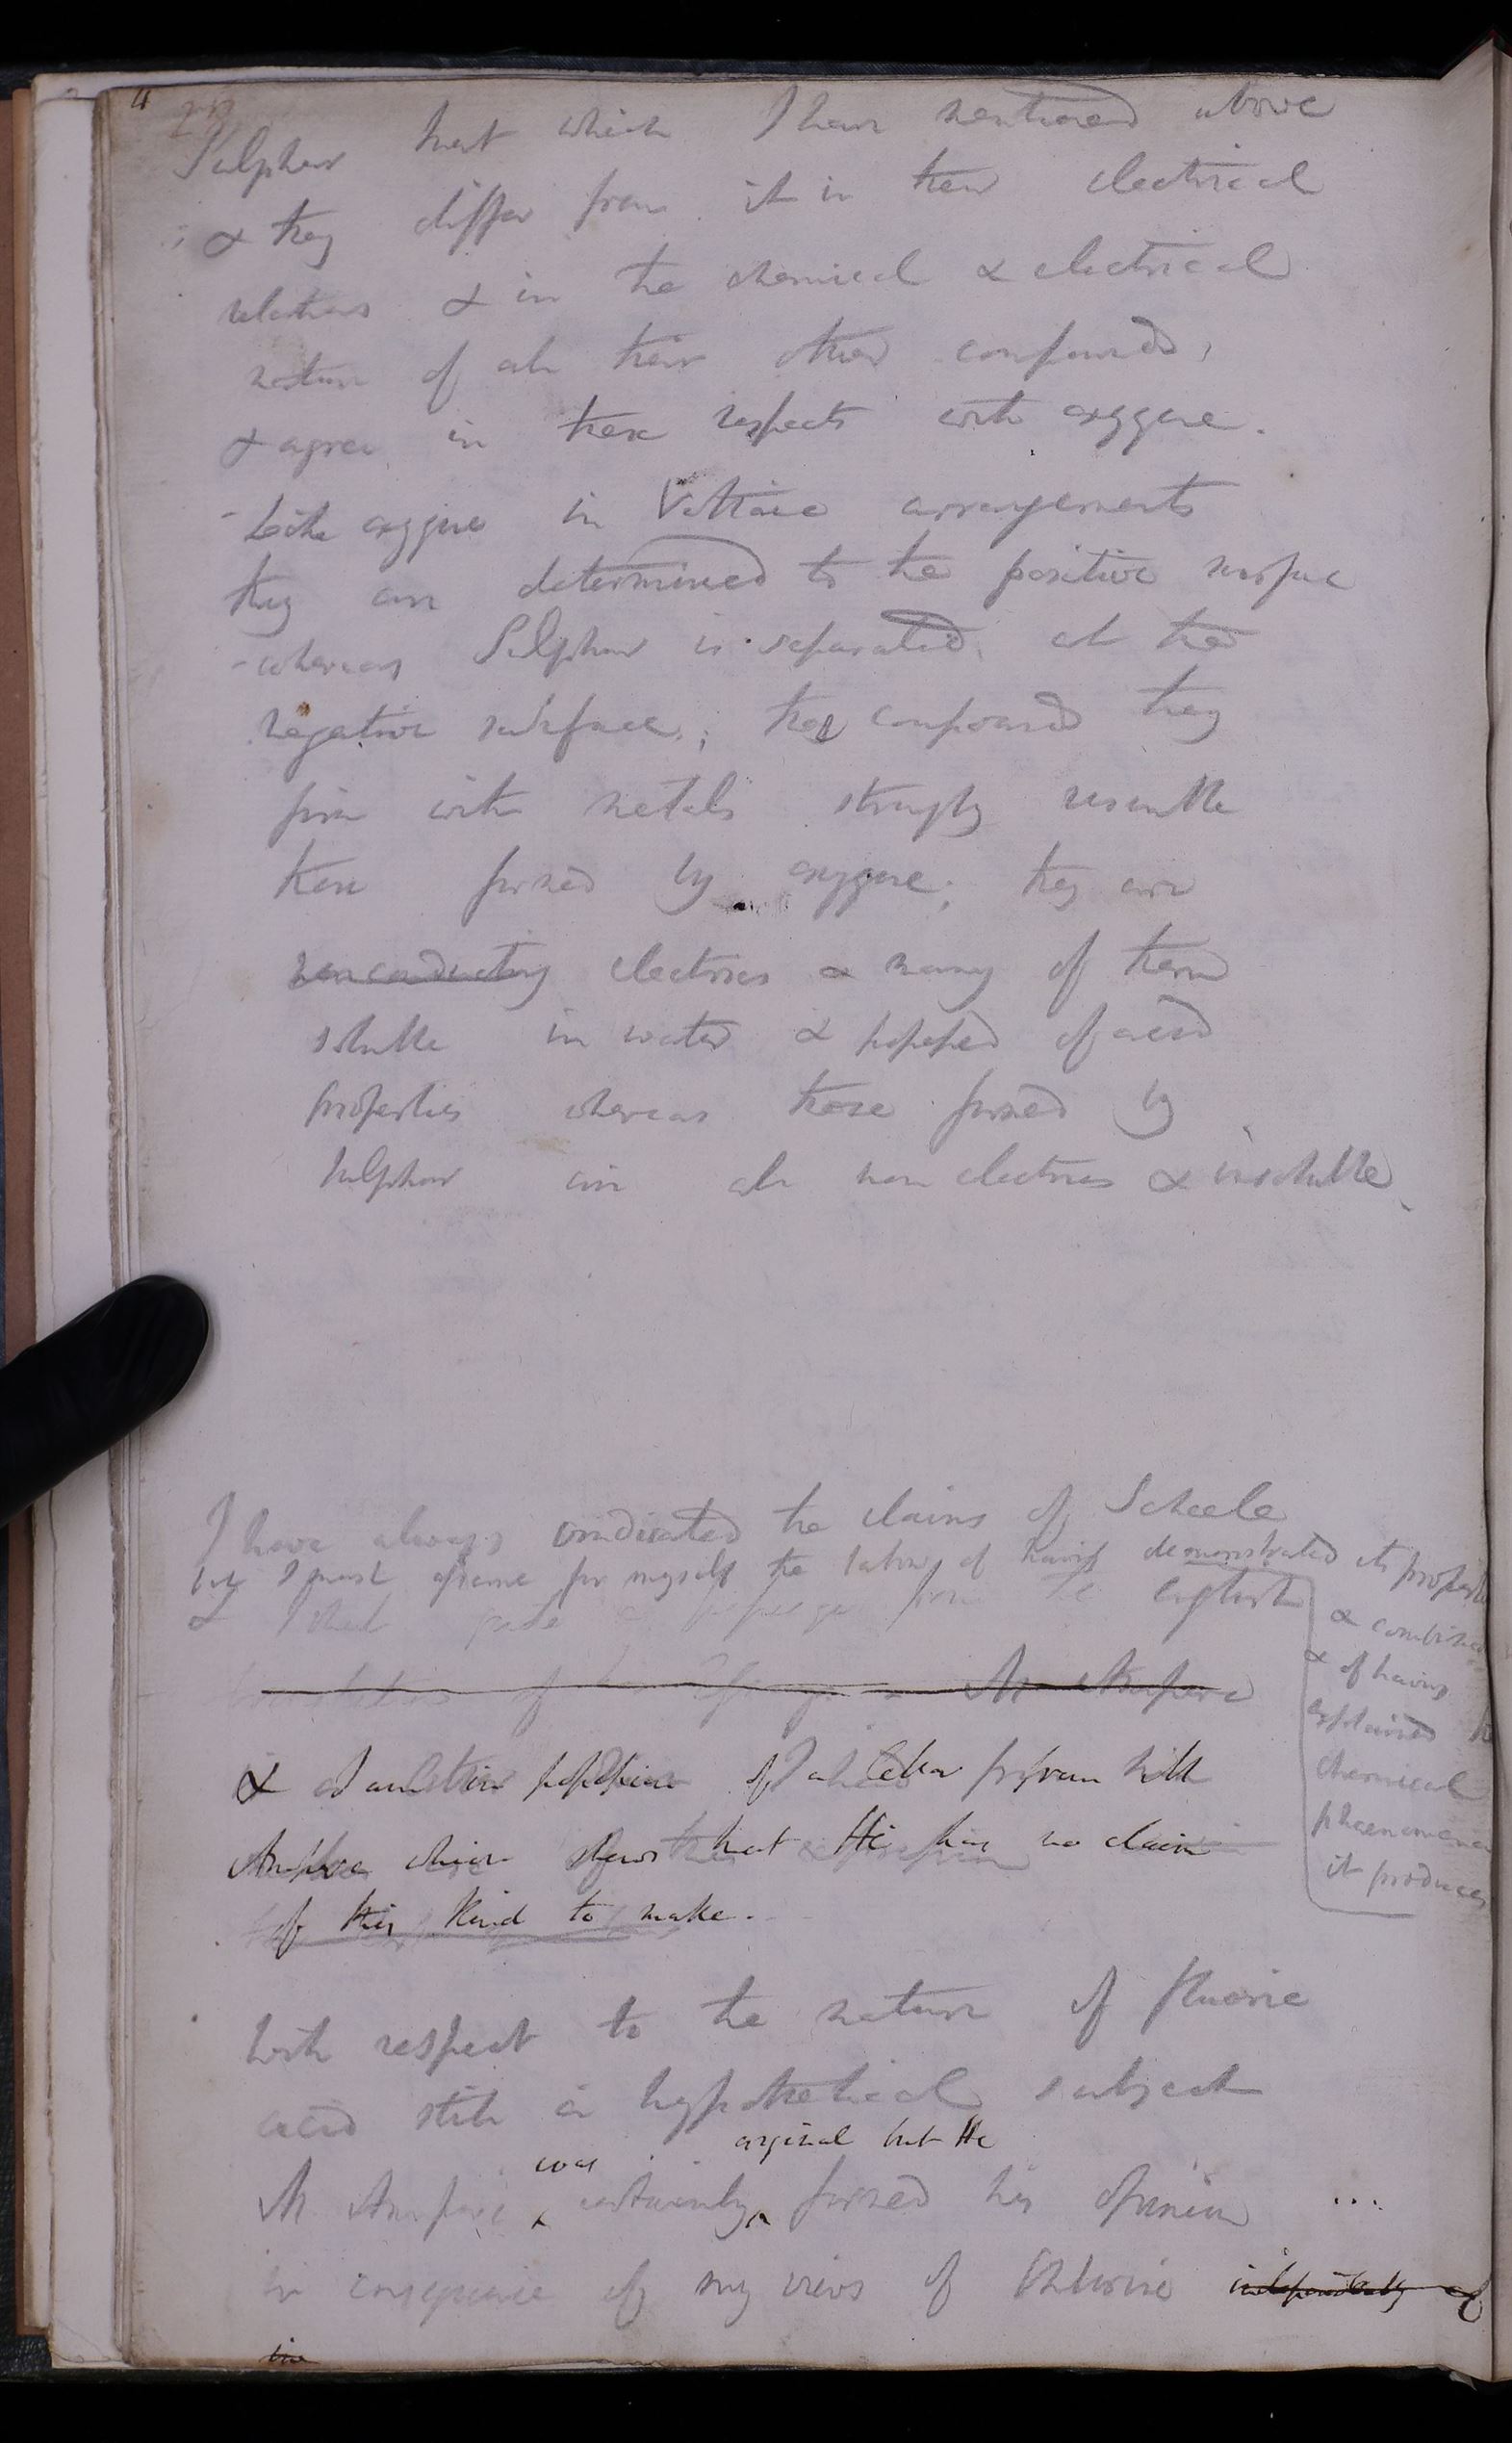 Sulphur that which I have mentioned above
& they differ from it in their electrical
relations & in the chemical & electrical
nature of all their other compounds,
& agree in these respects with oxygene.
- Like oxygene in Voltaic arrangements
they are determined to the positive surface
- whereas Sulphur is separated at the
negative surface; the compounds they
form with metals strongly resemble
those formed by oxygene; they are
nonconducting electrics & many of them
soluble in water & possessed of acid
properties whereas those formed by
Sulphur are all non electrics & insoluble.
I have always vindicated the claims of Scheele
but I must assume for myself the labour of having demonstrated its properties
& combinations
& of having
explained the
chemical
phaenomena
it produces
& I shall from the english
of M Ampere
& I am in possession of a letter from M
Ampere which shews that He has no claim
of this kind to make.
With respect to the nature of fluoric
acid still a hypothetical subject
was original but He
M. Ampere certainly formed his opinion ...
in consequence of my views of Chlorine independently of
the